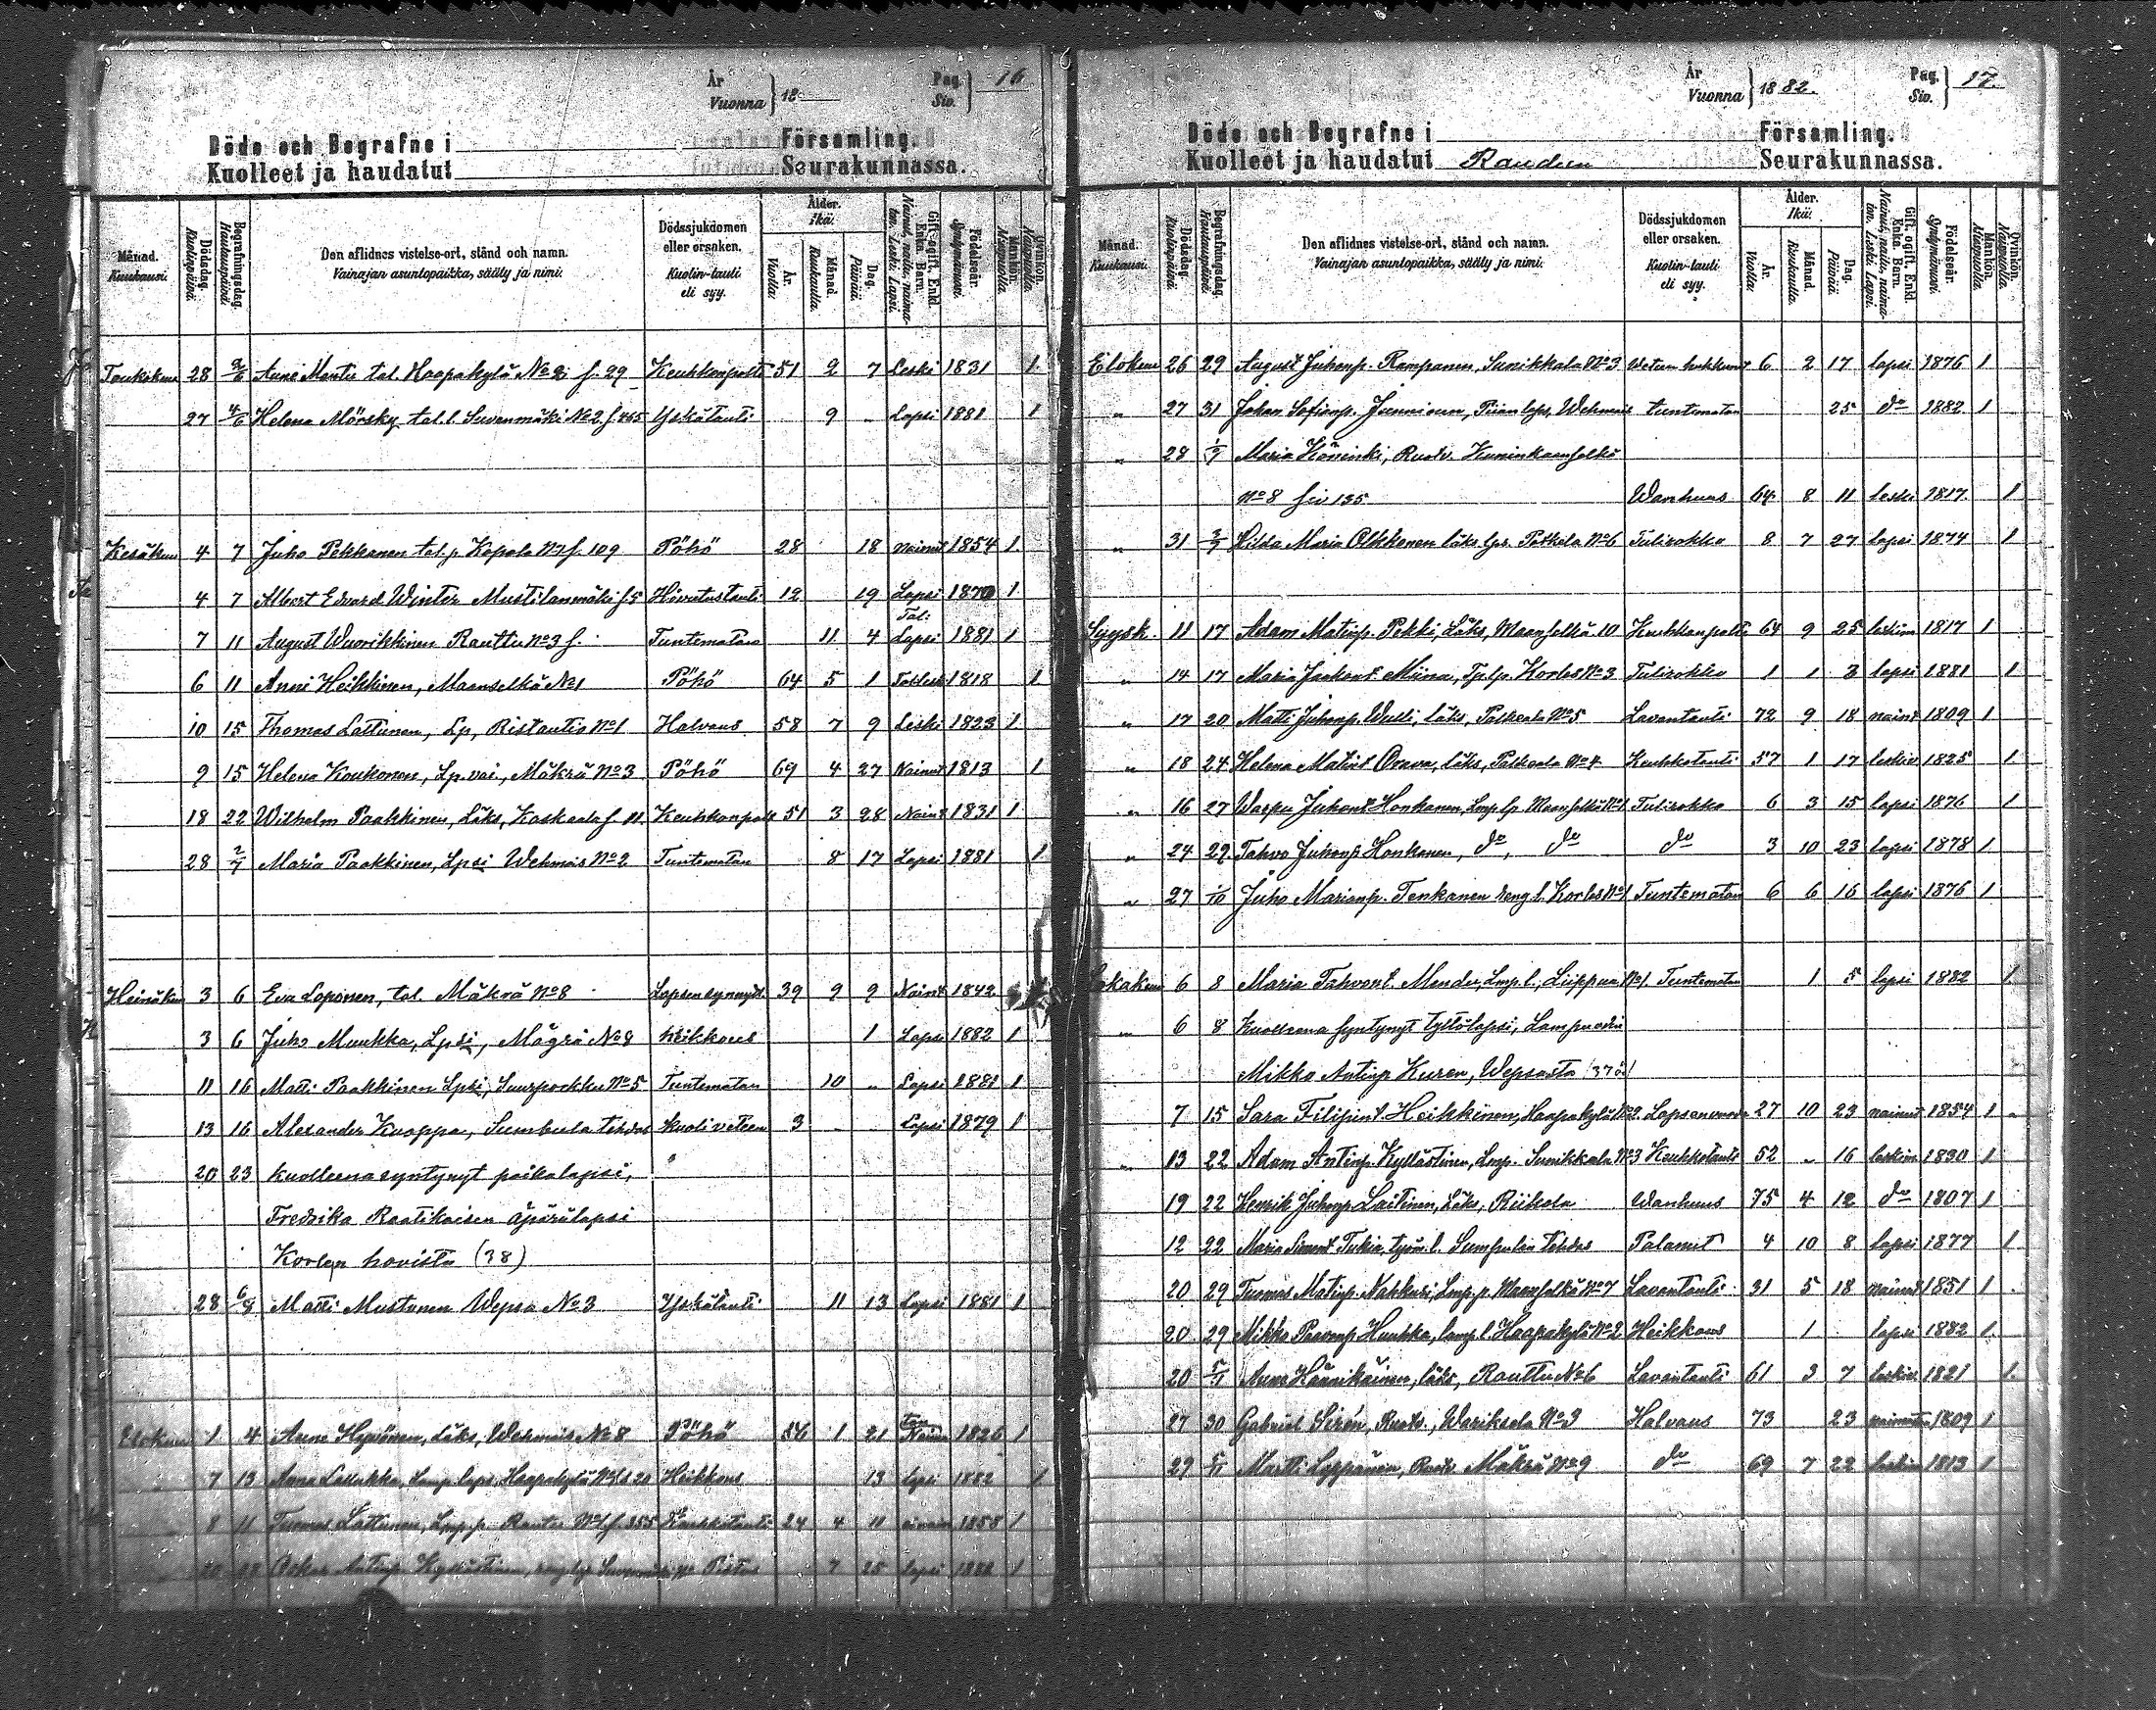 År
Vuonna } 18
Pag.
Siv. } 16
Döde och Begrafne i Församling.
Kuolleet ja haudatut Seurakunnassa.
Månad. Kuukausi. Dödsdag. Kuolinpäivä. Begrafningsdag. Hautauspäivä. Den aflidnes vistelse-ort, stånd och namn. Vainajan asuntopaikka, sääty ja nimi. Dödssjukdomen eller orsaken. Kuolin-tauti eli syy. Ålder. Ikä. År. Vuotta. Månad. Kuukautta. Dag. Päivää. Gift, ogift, Enkl. Enka. Barn. Nainut, naitu, naimaton. Leski. Lapsi. Födelseår. Syntymävuosi. Mankön. Miespuolia. Qvinkön. Naispuolia.
Toukokuu 28 2/6 Anni Mentu tal. Haapakylä No 2 f. 29 Keuhkonpoltto 51 2 7 Leski 1831 1
27 4/6 Helena Mörsky tal. l. Suvenmäki No 2 f. 465 Yskätauti 9 „ Lapsi 1881 1
Kesäkuu 4 7 Juho Pekkanen tal. p. Kopala No 1 f. 109 Pöhö 28 18 Nainut 1854 1
4 7 Albert Edvard Winter Mustilanmäki f. 5 Hivutustauti 12 19 Lapsi 1870 1
7 11 August Wuorikkinen Rauttu No 3 f. Tuntematon 11 4 Tal: Lapsi 1881 1
6 11 Anni Heikkinen, Maanselkä No 1 Pöhö 64 5 1 1818 1
10 15 Thomas Lattunen, Lp, Ristautio No 1 Halvaus 58 7 9 Leski 1823 1
9 15 Helena Koukonen, Lp. vai., Mäkrä No 3 Pöhö 69 4 27 Nainut 1813 1
18 22 Wilhelm Paakkinen, Läks, Koskeala f 111 Keuhkonpolt 51 3 28 Nainut 1831 1
28 2/7 Maria Paakkinen, Lpsi Wehmais No 2 Tuntematon 8 17 Lapsi 1881 1
Heinäkuu 3 6 Eva Loponen, tal. Mäkrä No 8 Lapsensynnytt. 39 9 9 Nainut 1842
3 6 Juho Muukka, Lpsi, Mägrä No 8 heikkous 1 Lapsi 1882 1
11 16 Matti Paakkinen Lpsi, Suurporkku No 5 Tuntematon 10 „ Lapsi 1881 1
13 16 Alexander Kuoppa, Sumbula tehdas kuoli veteen 3 Lapsi 1879 1
20 23 kuolleena syntynyt poikalapsi,
Fredrika Raatikaisen äpärälapsi
Korlen hovista (38)
28 6/8 Matti Mustonen Wepsa No 3 Yskätauti 11 13 Lapsi 1881 1
Elokuu 1 4 Anni Hyvönen, Läks, Wehmais No 8 Pöhö 56 1 21 1826 1
7 13 Anna Lamp. laps. Haapakylä Heikkous 13 lapsi 1882 1
8 11 Tuomas Lattunen, Lmp p. Rautu No 1 f. 355 Keuhkotauti 24 4 11 1858 1
Oskar Antinp. Kyllästinen, 7 25 lapsi 1882 1
År
Vuonna } 1882.
Pag.
Siv. } 17.
Döde och Begrafne i Församling.
Kuolleet ja haudatut Raudun Seurakunnassa.
Månad. Kuukausi. Dödsdag. Kuolinpäivä. Begrafningsdag. Hautauspäivä. Den aflidnes vistelse-ort, stånd och namn. Vainajan asuntopaikka, sääty ja nimi. Dödssjukdomen eller orsaken. Kuolin-tauti eli syy. Ålder. Ikä. År. Vuotta. Månad. Kuukautta. Dag. Päivää. Gift, ogift, Enkl. Enka. Barn. Nainut, naitu, naimaton. Leski. Lapsi. Födelseår. Syntymävuosi. Mankön. Miespuolia. Qvinkön. Naispuolia.
Elokuu 26 29 August Juhonp. Rampanen, Sunikkala No 3 Weteen hukkunut 6 2 17 lapsi 1876 1
„ 27 31 Johan Sofianp. Junninen, Piian laps. Wehmais tuntematon 25 do 1882 1
„ 28 1/9 Maria Köninki, Ruotv. Kuninkaanselkä
No 8 siv 135 Wanhuus 64 8 11 leski 1817 1
„ 31 3/9 Hilda Maria Olkkonen läks. lps. Palkela No 6 Tulirokko 8 7 27 lapsi 1874 1
Syysk. 11 17 Adam Matinp. Pekki, Läks, Maanselkä 10 Keuhkonpoltt 64 9 25 leskim 1817 1
„ 14 17 Maria Jaakont. Miina, Tp. lp. Korles No 3 Tulirokko 1 1 3 lapsi 1881 1
„ 17 20 Matti Juhonp. läks, Palkeala No 5 Lavantauti 72 9 18 nainut 1809 1
„ 18 24 Helena Matint. Orava, läks, Palkeala No 4 Keuhkotauti 57 1 17 leskiv 1825 1
„ 16 27 Warpu Juhont. Honkanen, Lmp. lp. Maanselkä No 1 Tulirokko 6 3 15 lapsi 1876 1
„ 24 29 Tahvo Juhonp. Honkanen, do, do do 3 10 23 lapsi 1878 1
„ 27 1/10 Juho Marianp. Tenkanen reng. l. Korles No 1 Tuntematon 6 6 16 lapsi 1876 1
Lokakuu 6 8 Maria Tahvont. Mender, Lmp. l., Liippua No 1 Tuntematon 1 5 lapsi 1882 1
„ 6 8 Kuolleena syntynyt tyttölapsi, Lampuodin
Mikko Antinp Kuren, Wepsasta (37)
7 15 Sara Filipint. Heikkinen, Haapakylä No 2 27 10 23 nainut 1854 1
„ 13 22 Adam Antinp. Kyllästinen, Lmp. Sunikkala No 3 Keuhkotauti 52 „ 16 leskim 1830 1
19 22 Henrik Juhonp Laitinen, Läks, Riikola Wanhuus 75 4 12 do 1807 1
12 22 Maria Simont Tukia, tyom. l. Sumpulin tehdas Palanut 4 10 8 lapsi 1877 1
20 29 Tuomas Matinp. Nakkuri, Lmp. p. Maanselkä No 7 Lavantauti 31 5 18 nainut 1851 1
20 29 Mikko Paavonp Huuhka, lamp l. Haapakylä No 2 Heikkous 1 lapsi 1882 1
20 5/11 Anna Hännikäinen, läks, Rauttu No 6 Lavantauti 61 3 7 leskiv. 1821 1
27 30 Gabriel Sirén, Ruotv., Wariksela No 3 Halvaus 73 23 1809 1
29 5/11 Martti Leppänen, Ruotv. Mäkrä No 9 do 69 7 22 leskim 1813 1